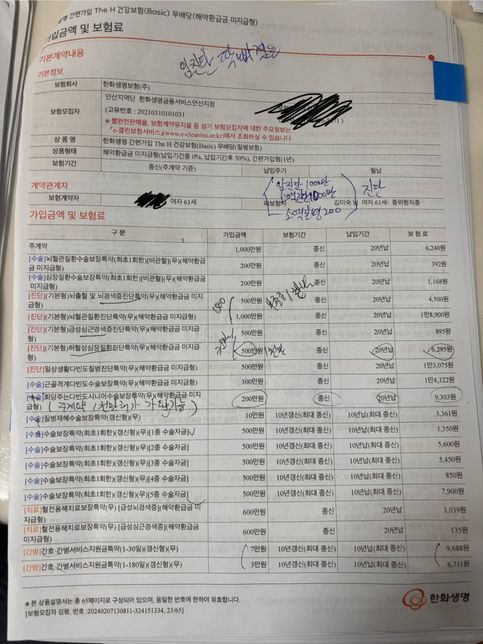 생명 간편가입 The H 건강보험(Basic) 무배당(해약환급금 미지급형)
가입금액 및 보험료
기본계약내용
기본정보
보험회사 한화생명보험(주)
보험모집자 안산지역단 한화생명금융서비스안산지점
(고유번호 : 20210310101031
※ 불완전판매율, 보험계약유지율 등 상기 보험모집자에 대한 주요정보는
「e-클린보험서비스」(www.e-cleanins.or.kr)에서 조회하실 수 있습니다.
상 품 명 한화생명 간편가입 The H 건강보험(Basic) 무배당(질병보험)
상품형태 해약환급금 미지급형(납입기간중 0%, 납입기간후 50%), 간편가입형(1년)
보험기간 종신(주계약 기준) 납입주기 월납
계약관계자
보험계약자 여자 61세 피보험자 김미숙 님 여자 61세 중위험직종
암진단 1000만
소액질병 200
진단
가입금액 및 보험료
구 분 가입금액 보험기간 납입기간 보 험 료
주계약 1,000만원 종신 20년납 6,240원
[수술]뇌혈관질환수술보장특약(최초1회한)(비관혈)(무)(해약환급금 미지급형) 200만원 종신 20년납 392원
[수술]심장질환수술보장특약(최초1회한)(비관혈)(무)(해약환급금 미지급형) 200만원 종신 20년납 1,168원
[진단](기본형)뇌출혈 및 뇌경색증진단특약(무)(해약환급금 미지급형) 500만원 종신 20년납 4,500원
[진단](기본형)뇌혈관질환진단특약(무)(해약환급금 미지급형) 1,000만원 종신 20년납 1만8,900원
[진단](기본형)급성심근경색증진단특약(무)(해약환급금 미지급형) 500만원 종신 20년납 895원
[진단](기본형)허혈성심장질환진단특약(무)(해약환급금 미지급형) 500만원 종신 20년납 6,295원
[진단]일상생활다빈도질병진단특약(무)(해약환급금 미지급형) 500만원 종신 20년납 1만3,075원
[수술]근골격계다빈도수술보장특약(무)(해약환급금 미지급형) 300만원 종신 20년납 1만4,322원
200만원 종신 20년납 9,303원
[수술]질병재해수술보장특약(갱신형)(무) 10만원 10년갱신(최대 종신) 10년납(최대 종신) 3,361원
[수술]수술보장특약(최초1회한)(갱신형)(무)[1종 수술자금] 500만원 10년갱신(최대 종신) 10년납(최대 종신) 1,350원
[수술]수술보장특약(최초1회한)(갱신형)(무)[2종 수술자금] 500만원 10년갱신(최대 종신) 10년납(최대 종신) 5,600원
[수술]수술보장특약(최초1회한)(갱신형)(무)[3종 수술자금] 500만원 10년갱신(최대 종신) 10년납(최대 종신) 5,450원
[수술]수술보장특약(최초1회한)(갱신형)(무)[4종 수술자금] 500만원 10년갱신(최대 종신) 10년납(최대 종신) 850원
[수술]수술보장특약(최초1회한)(갱신형)(무)[5종 수술자금] 500만원 10년갱신(최대 종신) 10년납(최대 종신) 7,900원
[치료]혈전용해치료보장특약(무) [급성뇌경색증](해약환급금 미지급형) 600만원 종신 20년납 3,039원
[치료]혈전용해치료보장특약(무) [급성심근경색증](해약환급금 미지급형) 600만원 종신 20년납 135원
[간병]간호·간병서비스지원금특약(1-30일)(갱신형)(무) 7만원 10년갱신(최대 종신) 10년납(최대 종신) 9,688원
[간병]간호·간병서비스지원금특약(1-180일)(갱신형)(무) 3만원 10년갱신(최대 종신) 10년납(최대 종신) 6,711원
※ 본 상품설명서는 총 65페이지로 구성되어 있으며, 동일한 번호에 한하여 유효합니다.
[보험모집자 김평, 번호 : 20240207130811-324151334, 23/65]
한화생명